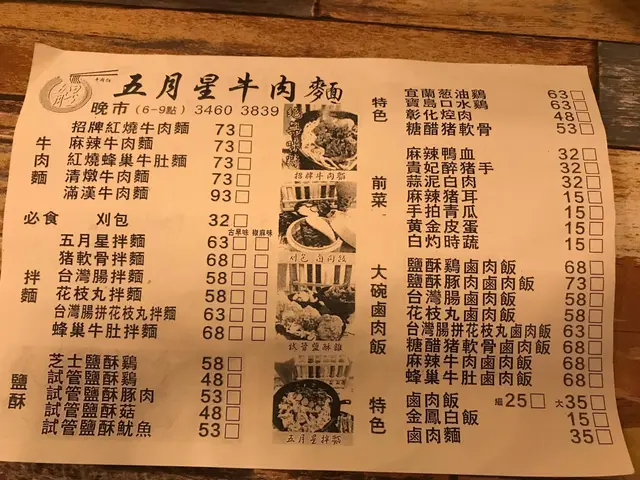 五月星牛肉麵
晚市 (6-9點) 3460 3839
牛肉麵
招牌紅燒牛肉麵 73□
麻辣牛肉麵 73□
紅燒蜂巢牛肚麵 73□
清燉牛肉麵 73□
滿漢牛肉麵 93□
必食 刈包 32□
古早味 椒麻味
拌麵
五月星拌麵 63□□
猪軟骨拌麵 68□□
台灣腸拌麵 58□□
花枝丸拌麵 58□□
台灣腸拼花枝丸拌麵 63□□
蜂巢牛肚拌麵 68□□
鹽酥
芝士鹽酥鷄 58□
試管鹽酥鷄 48□
試管鹽酥豚肉 53□
試管鹽酥菇 48□
試管鹽酥魷魚 53□
招牌牛肉麵
刈包 卤肉飯
試管鹽酥雞
五月星拌麵
特色
宜蘭葱油鷄 63□
寶島口水鷄 63□
彰化焢肉 48□
糖醋猪軟骨 53□
前菜
麻辣鴨血 32□
貴妃醉猪手 32□
蒜泥白肉 32□
麻辣猪耳 15□
手拍青瓜 15□
黄金皮蛋 15□
白灼時蔬 15□
大碗鹵肉飯
鹽酥鷄鹵肉飯 68□
鹽酥豚肉鹵肉飯 73□
台灣腸鹵肉飯 58□
花枝丸鹵肉飯 58□
台灣腸拼花枝丸鹵肉飯 63□
糖醋猪軟骨鹵肉飯 68□
麻辣牛肉鹵肉飯 68□
蜂巢牛肚鹵肉飯 68□
特色
鹵肉飯 細25□ 大35□
金鳳白飯 15□
鹵肉麵 35□